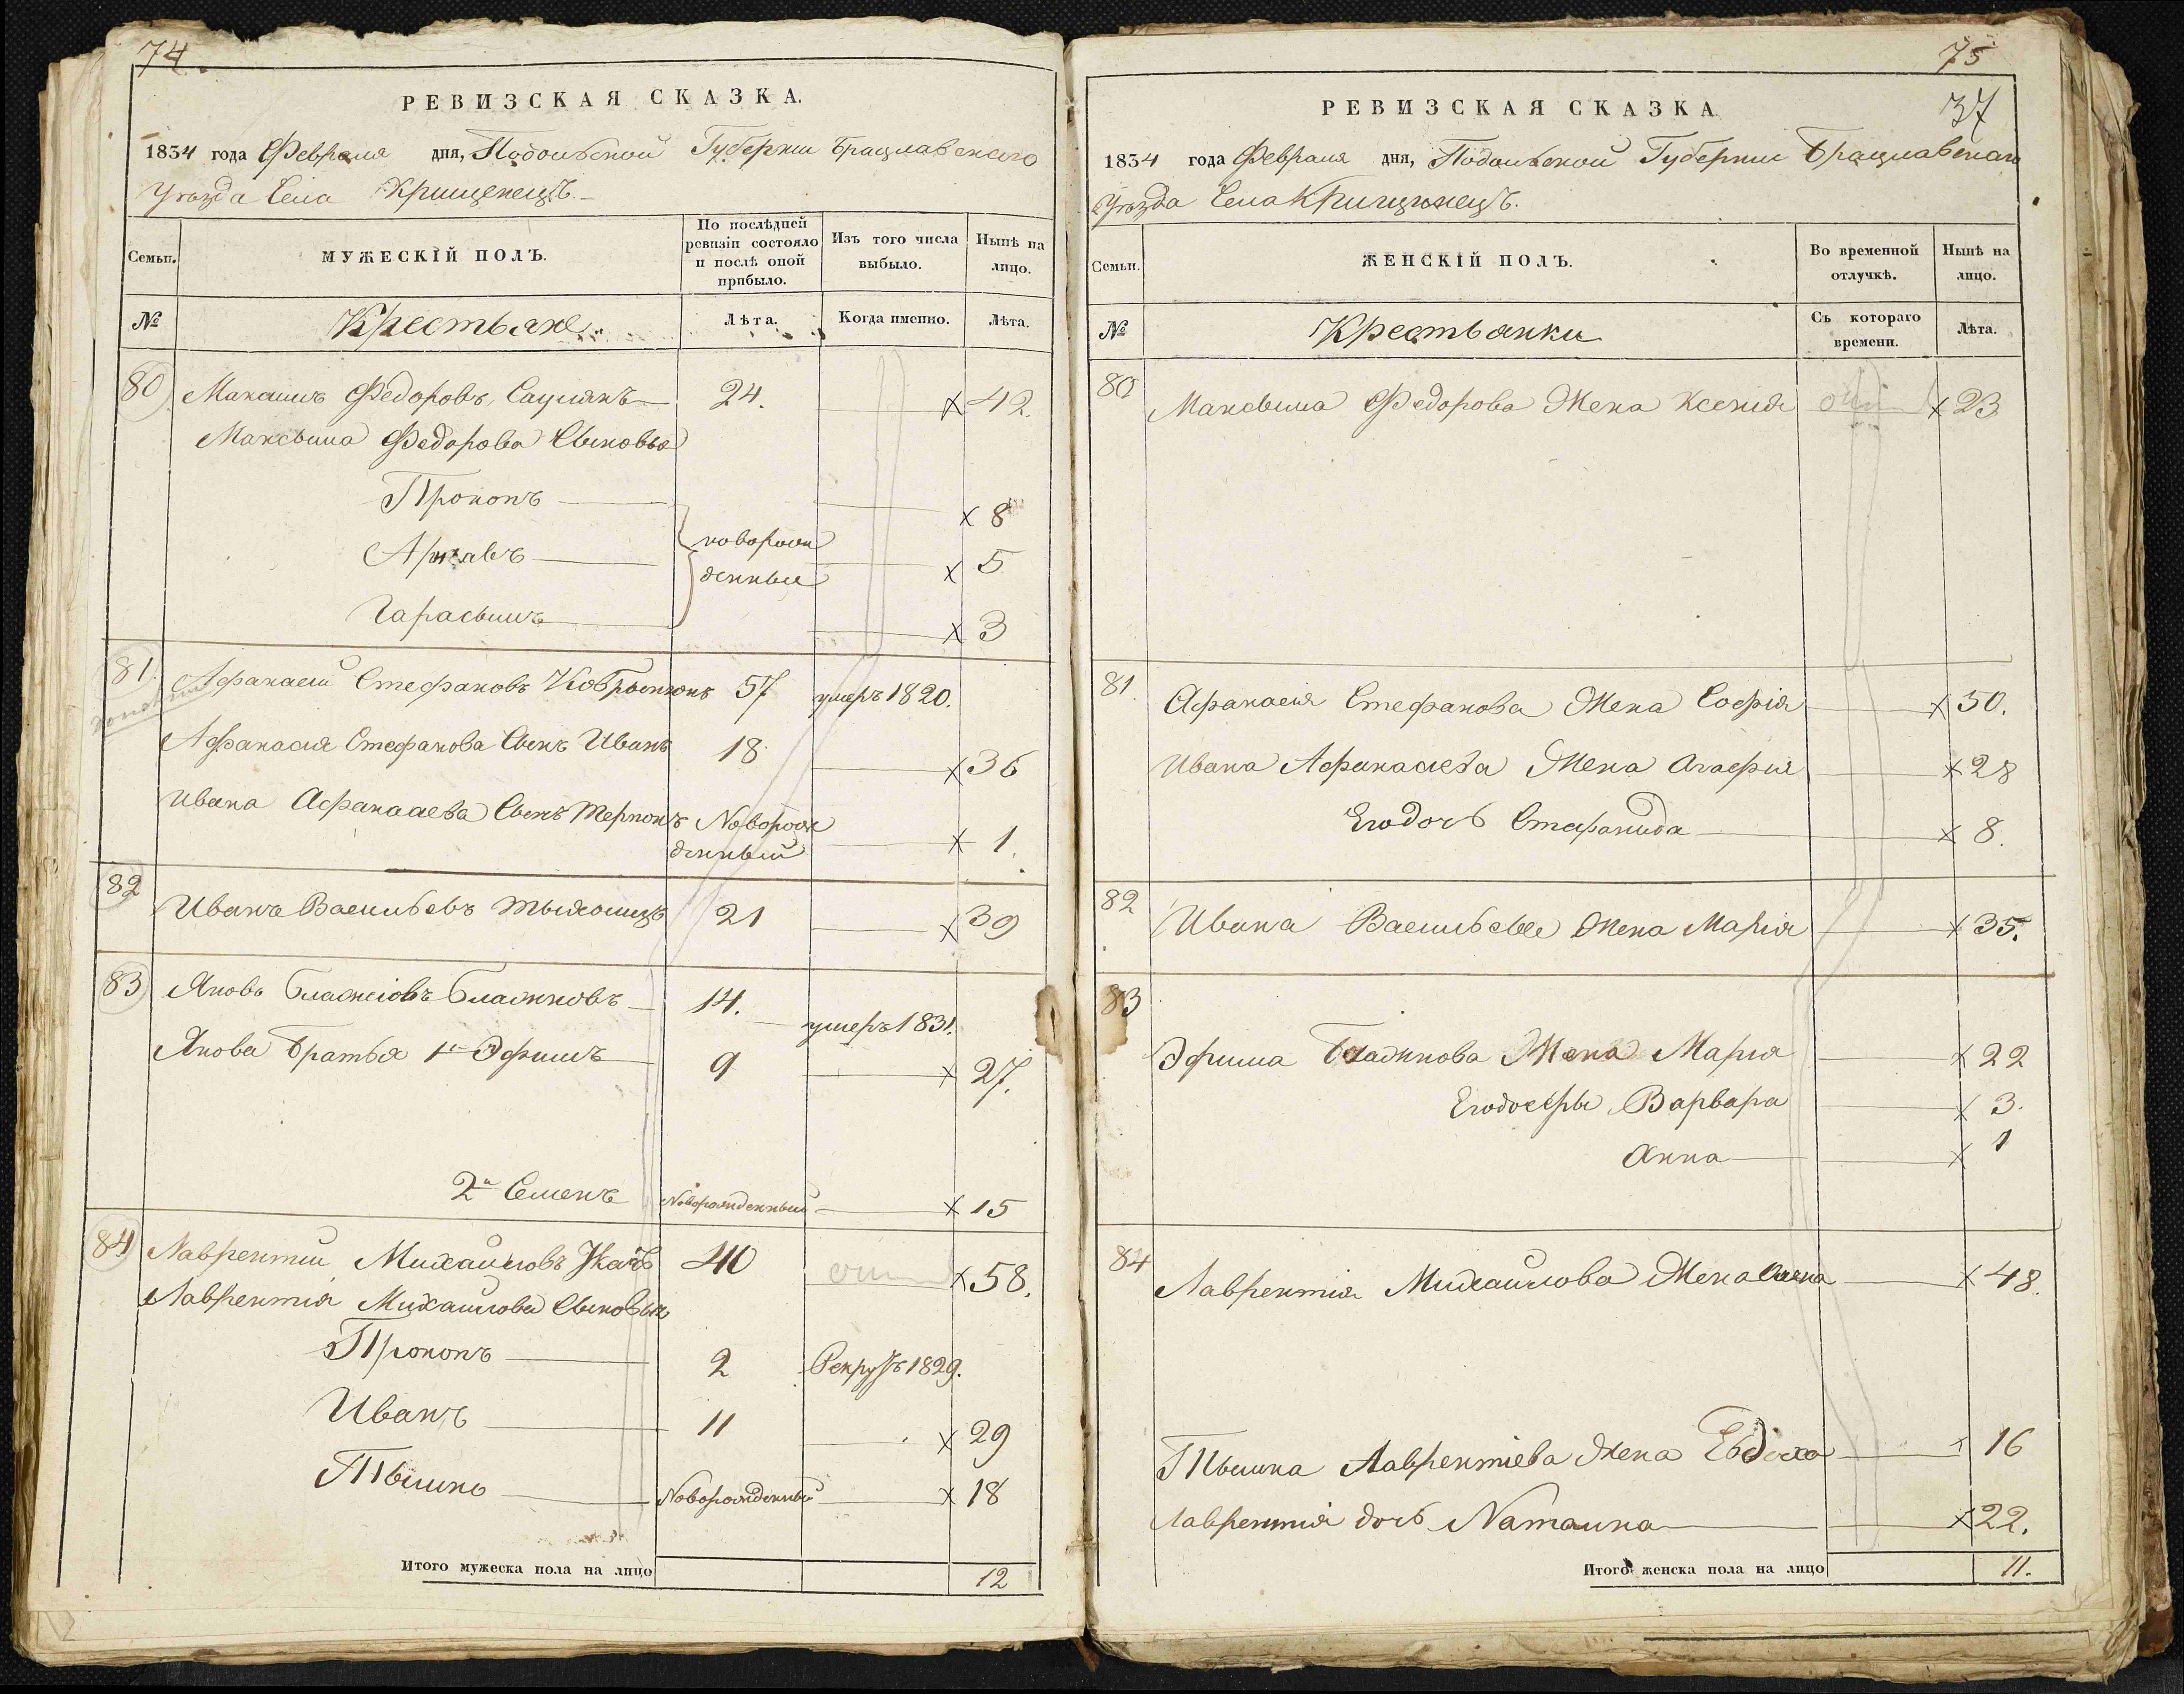 74.
РЕВИЗСКАЯ СКАЗКА.
1834 года Февраля дня, Подольской Губернии Брацлавского
Уѣзда Села Крищенецъ.
Семьи.
МУЖЕСКІЙ ПОЛЪ.
По послѣдней ревизіи состояло и послѣ оной прибыло.
Изъ того числа выбыло.
Нынѣ на лицо.
№
Крестьяне
Лѣта.
Когда именно.
Лѣта.
80 Максимъ Федоровъ 24. 42.
Максыма Федорова Сыновья
Прокопъ 8
новорож 5
денные
Гарасымъ 3
81. Афанасій Стефановъ 57 умеръ 1820.
Афанасія Стефанова Сынъ Иванъ 18 36
Ивана Афанасаева Сынъ Новорож
денный 1.
82 Иванъ Васильевъ 21 39
83 Яковъ 14. умеръ 1831.
Якова Братья 1й Эфимъ 9 27.
2й Семенъ Новорожденный 15
84 Лаврентій Михайловъ Ткачъ 40 58.
Лаврентія Михайлова Сыновья
Прокопъ 2 Рекрутъ 1829.
Иванъ 11 29
Тымко Новорожденный 18
Итого мужеска пола на лицо 12
75
37
РЕВИЗСКАЯ СКАЗКА
1834 года Февраля дня, Подольской Губернии Брацлавскаго
Уѣзда Села Крищинецъ.
Семьи.
ЖЕНСКІЙ ПОЛЪ.
Во временной отлучкѣ.
Нынѣ на лицо.
№
Крестьянки
Съ котораго времени.
Лѣта.
80 Максыма Федорова Жена Ксенія 23
81. Афанасія Стефанова Жена Софія 50.
Ивана Афанасиева Жена Агафія 28
Егодочь Стефанида 8.
82 Ивана Васильева Жена Марія 35.
83
Эфима Блажкова Жена Марія 22
Варвара 3.
Анна 1
84 Лаврентія Михайлова Жена 48.
Тымка Лаврентіева Жена Евдоха 16
Лаврентія дочь Наталка 22.
Итого женска пола на лицо 11.